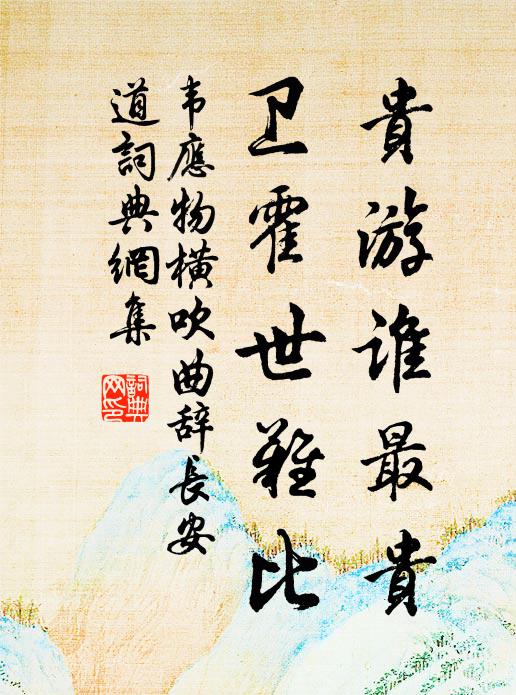 貴游谁最貴
卫霍世難比
韦應物横吹曲辞長安
道詞典網集
詞典
网印